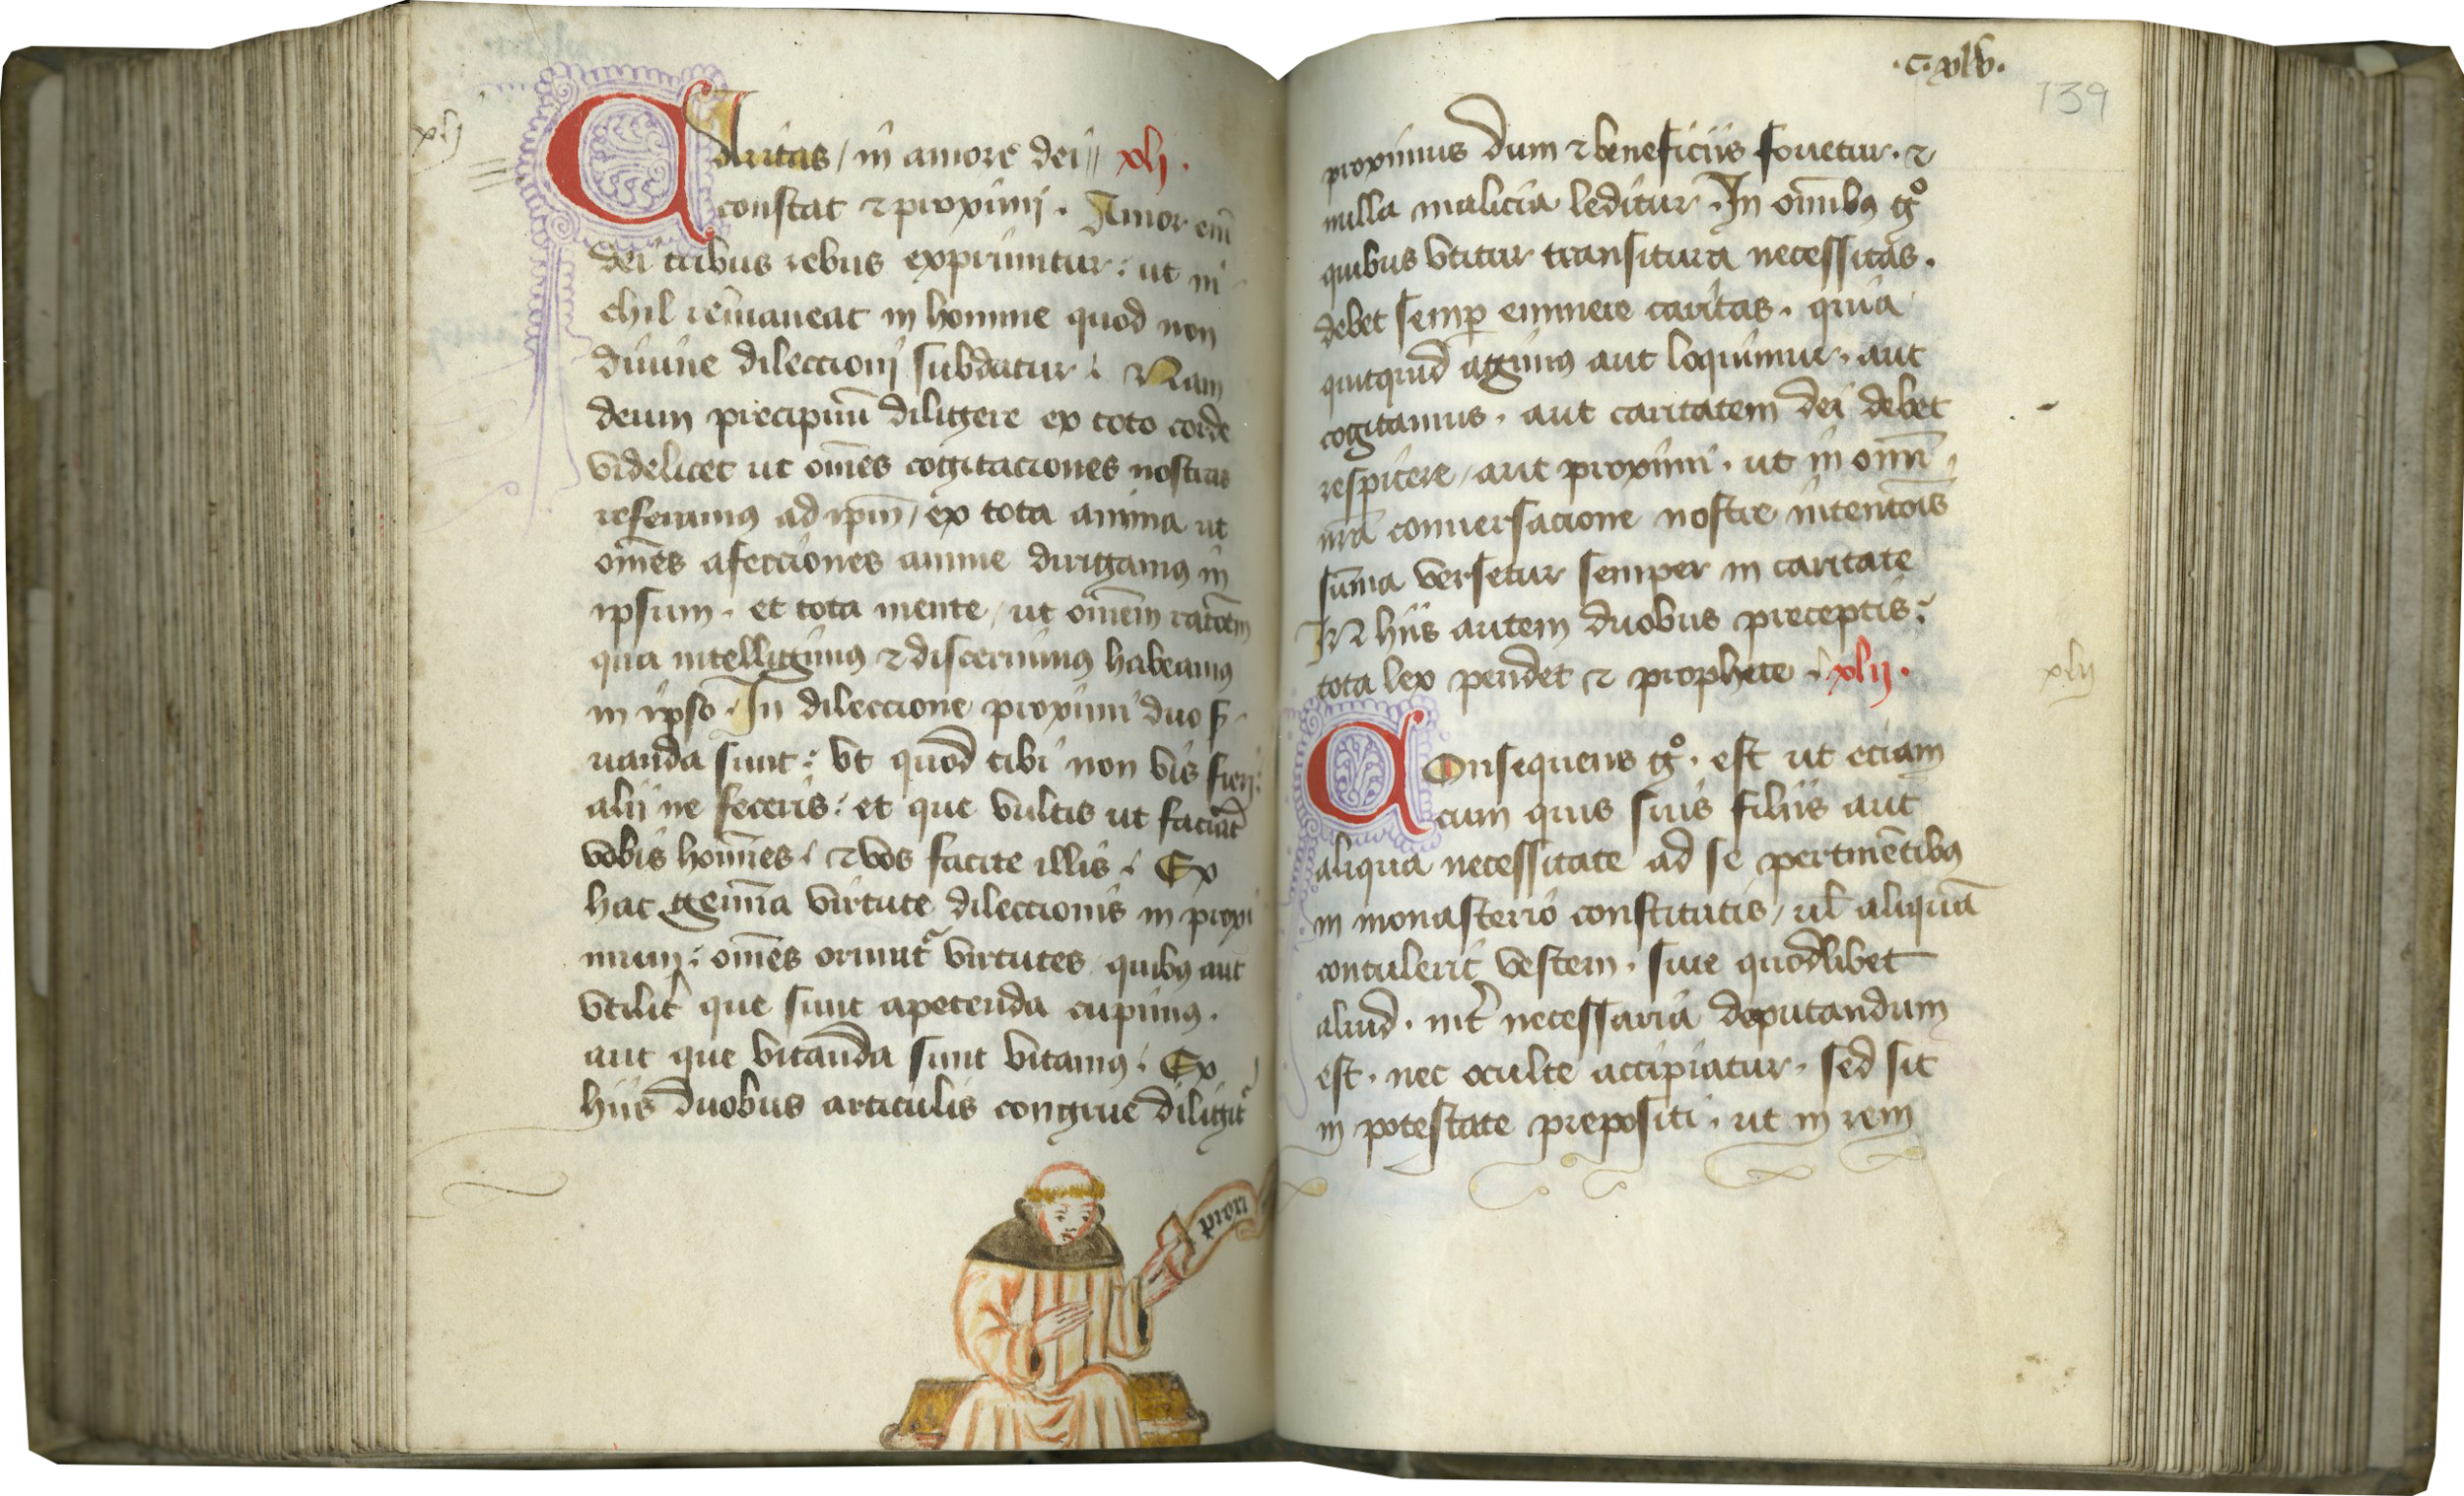 xlj
Caritas / in amore dei // xlj.
constat ⁊ proximi. Amor eni̅
dei tribus rebus exprimitur: ut ni
chil remaneat in homine quod non
diuine dileccioni subdatur. Nam
deum precipiuu̅ diligere ex toto corde
videlicet ut om̅es cogitaciones nostras
referamꝰ ad ip̅m / ex tota anima ut
om̅es afecciones anime dirigamꝰ in
ipsum. et tota mente / ut om̅em rac̅oem
qua intelligimꝰ ⁊ discernimꝰ habeamꝰ
in ipso. In dileccione proximi duo s̅
uanda sunt: vt quod tibi non vis fieri:
alij ne feceris: et que vultis ut facia̅t
vobis homi̅es. ⁊ vos facite illis. Ex
hac gemi̅a virtute dileccionis in proxi
mum: om̅es oriunt᷑ virtutes quibꝰ aut
vtilit᷑ que sunt apetenda cupimꝰ.
aut que vitanda sunt vitamꝰ. Ex
hiis duobus articulis congrue diligit᷑
priori
.C.xlv.
139
proximus dum ⁊ beneficiis fouetur. ⁊
nulla malicia leditur. In om̅ibꝰ gͦ
quibus vtitur transitura necessitas.
debet semp̲ eminere caritas. quia
quitquid agimꝰ aut loquimur. aut
cogitamus. aut caritatem dei debet
respicere / aut proximi. ut in omi̅
nr̅a conuersacione nostre intenc̅ois
su̅ma versetur semper in caritate
IN hiis autem duobus preceptis:
tota lex pendet ⁊ prophete. xlij.
xlij
Consequens gͦ. est ut eciam
cum quis suis filiis aut
aliqua necessitate ad se pertine̅tibꝰ
in monasterio constitutis / ul̅ aliqua̅
contulerit vestem. siue quodlibet
aliud. int᷑ necessaria deputandum
est. nec oculte accipiatur. sed sit
in potestate prepositi. ut in rem